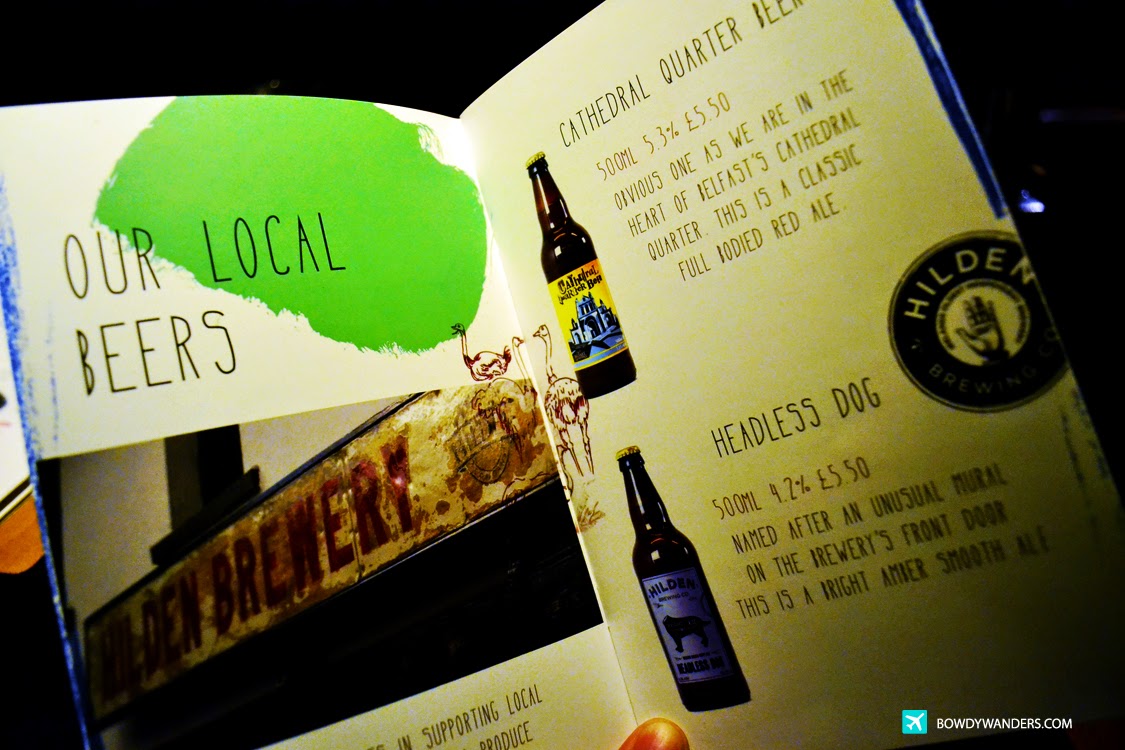 OUR LOCAL
BEERS
HILDEN BREWERY
IN SUPPORTING LOCAL
PRODUCE
CATHEDRAL QUARTER BEER
500ML 5.3% £5.50
OBVIOUS ONE AS WE ARE IN THE
HEART OF BELFAST'S CATHEDRAL
QUARTER. THIS IS A CLASSIC
FULL BODIED RED ALE.
CATHEDRAL
QUARTER BEER
HILDEN
BREWING CO
HEADLESS DOG
500ML 4.2% £5.50
NAMED AFTER AN UNUSUAL MURAL
ON THE BREWERY'S FRONT DOOR
THIS IS A BRIGHT AMBER SMOOTH ALE
HILDEN
BREWING CO.
HEADLESS DOG
BOWDYWANDERS.COM